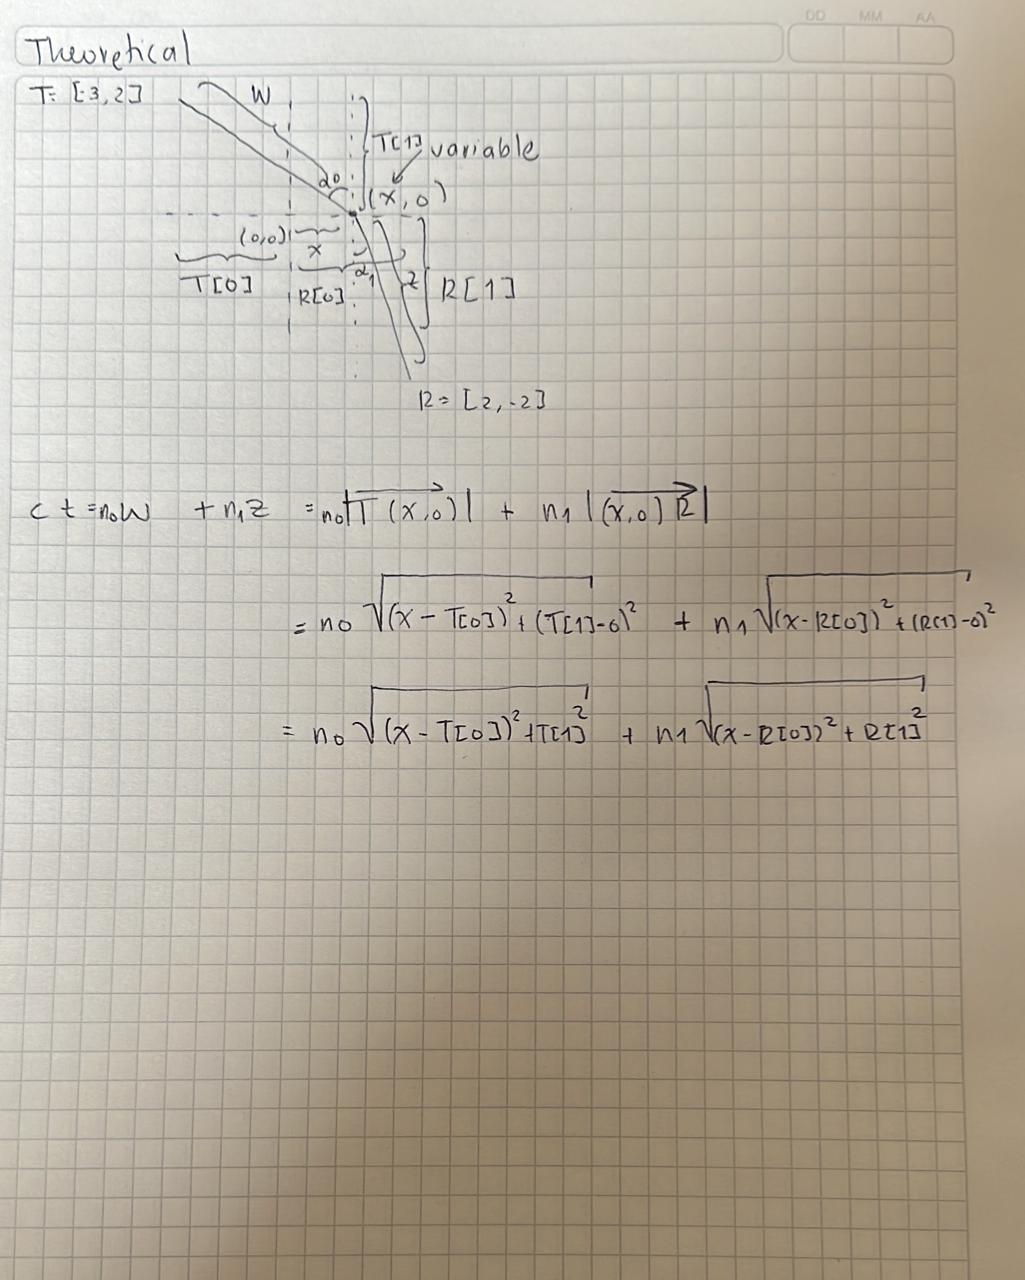 DD MM AA
Theoretical
T= [-3,2]
W
T[1] variable
α0
(x,0)
(0,0)
x
T[0]
R[0]
α1
z
R[1]
R= [2,-2]
ct = n0W + n1z = n0|T(x,0)| + n1|(x,0)R|
= n0 √(x-T[0])²+(T[1]-0)² + n1 √(x-R[0])²+(R[1]-0)²
= n0 √(x-T[0])²+T[1]² + n1 √(x-R[0])²+R[1]²